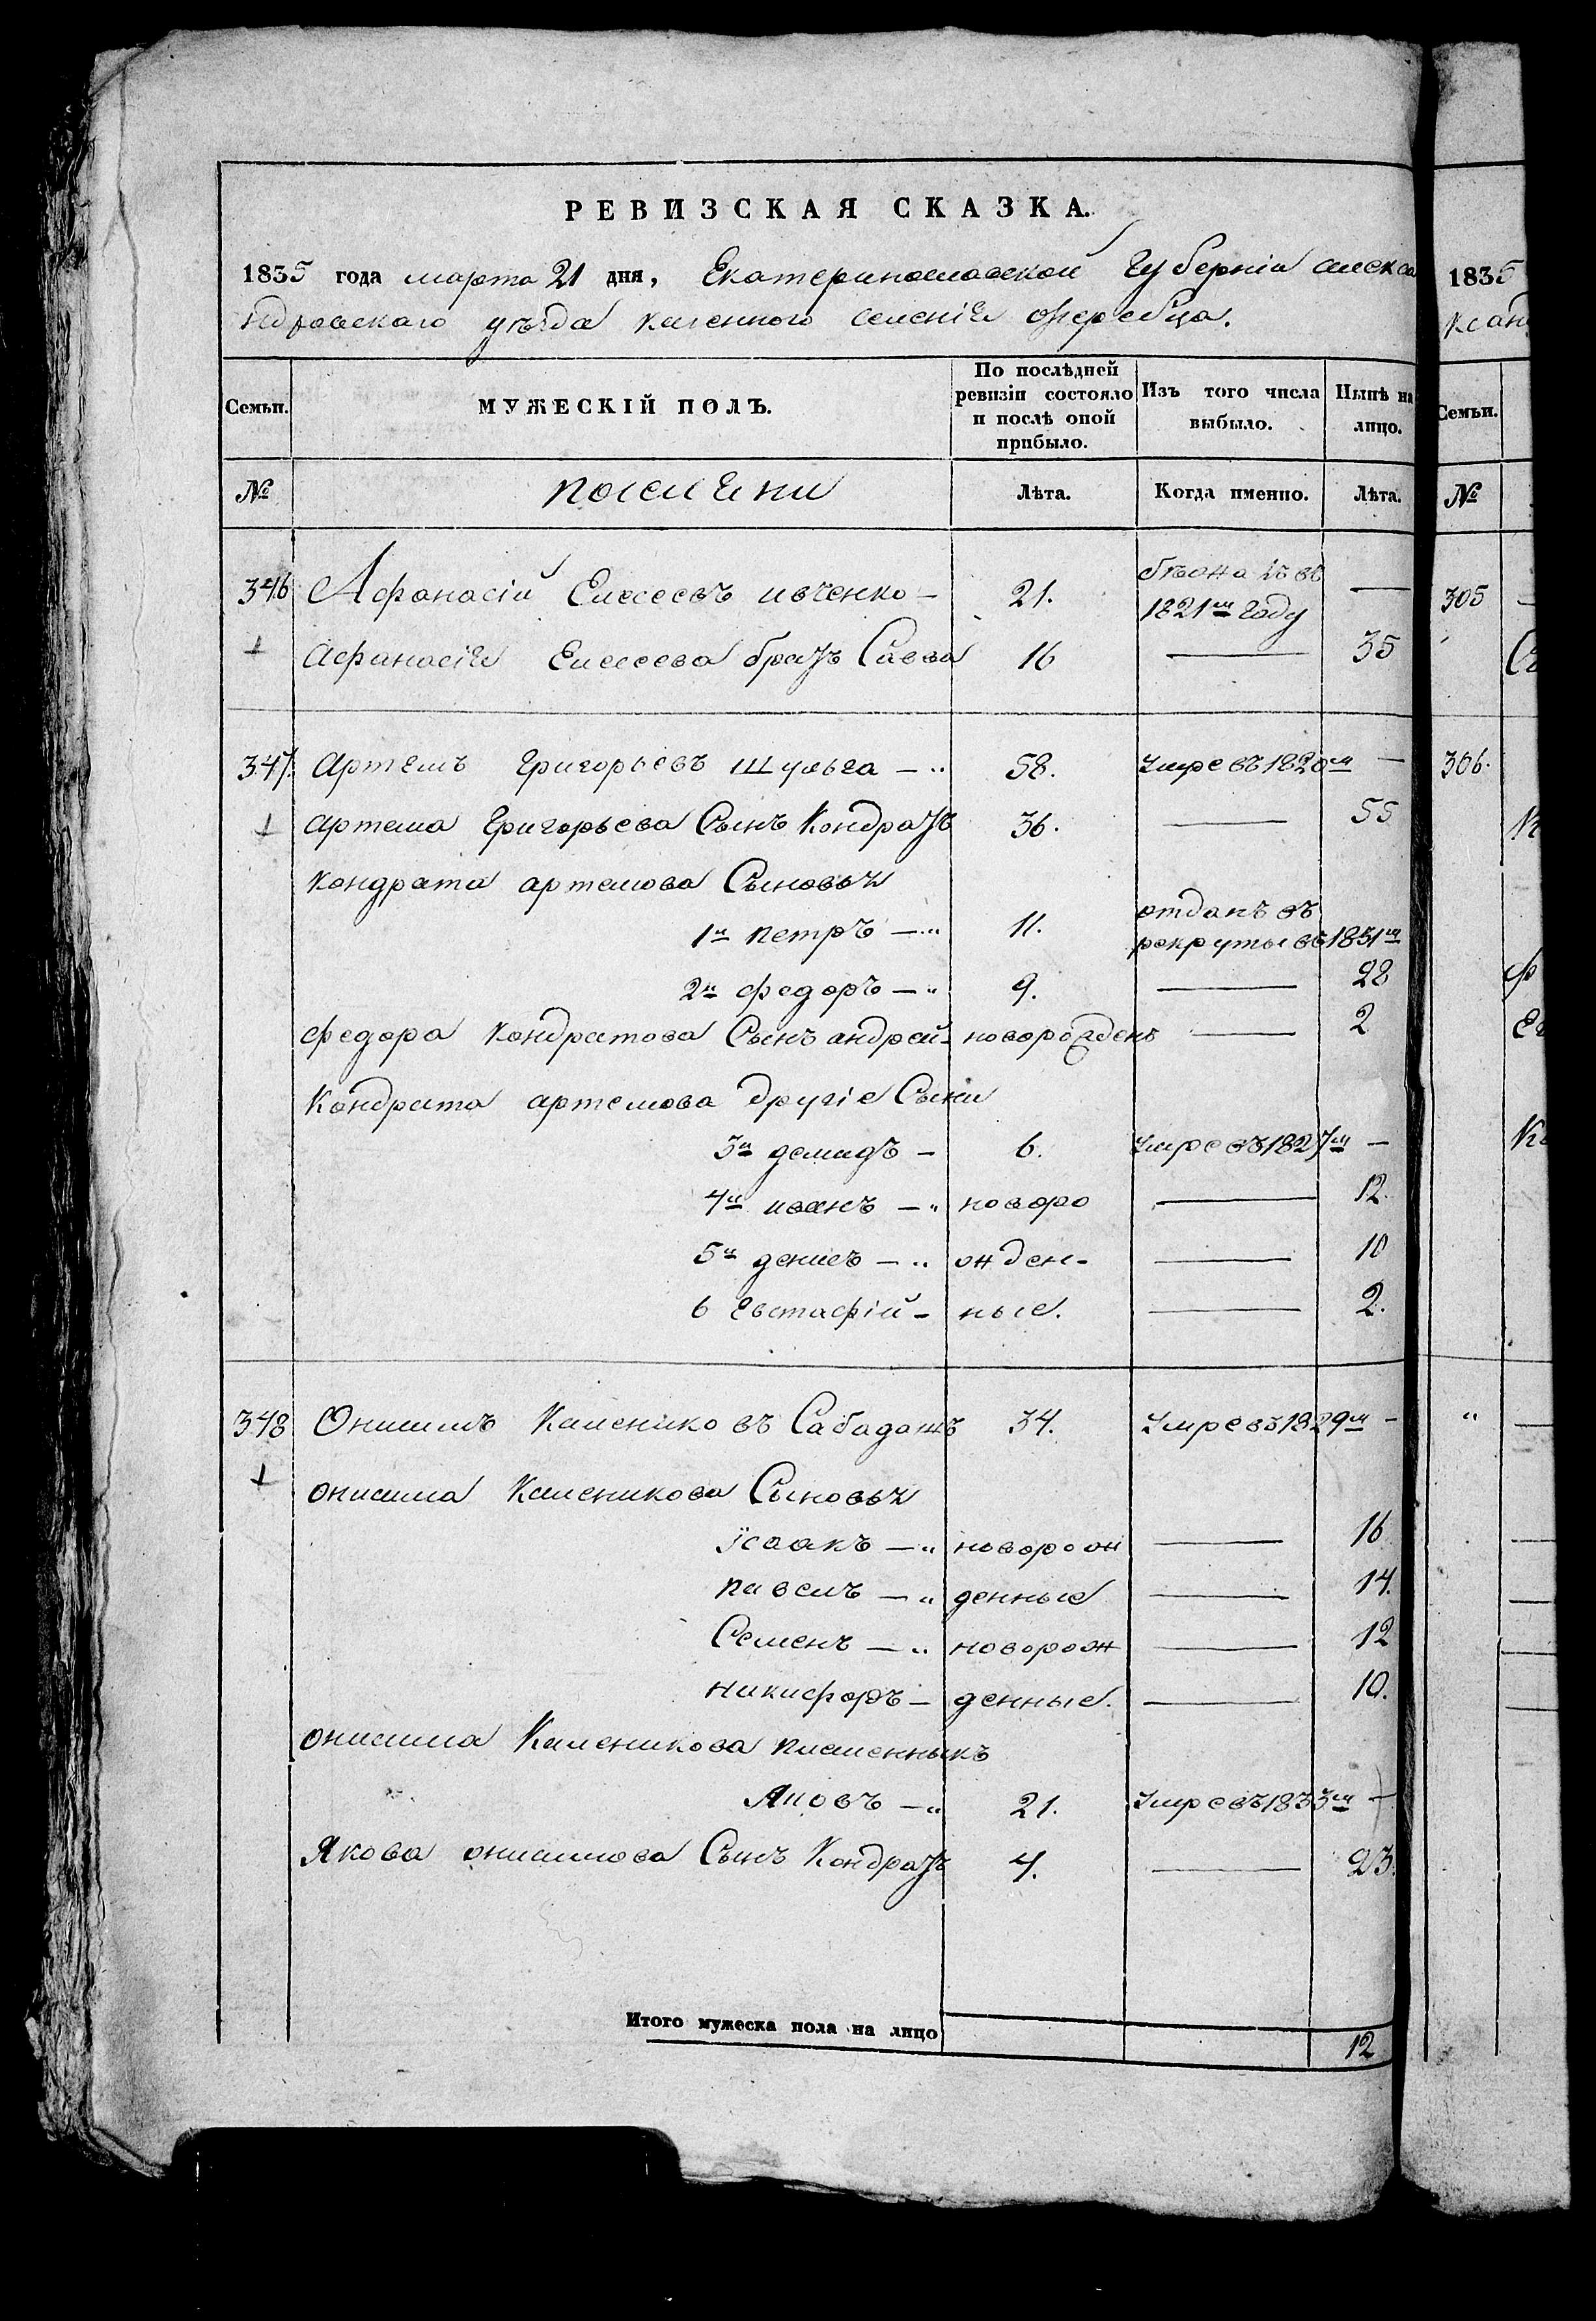 РЕВИЗСКАЯ СКАЗКА.
1835 года марта 21 дня, Екатеринославской Губерніи алекса
ндровскаго уѣзда казенного селенія жеребца.
Семьи. МУЖЕСКІЙ ПОЛЪ. По послѣдней ревизіи состояло и послѣ оной прибыло. Изъ того числа выбыло. Нынѣ на лицо.
№ Лѣта. Когда именно. Лѣта.
346 Афанасій Елесеевъ ивченко — 21. бѣжалъ въ 1821м году —
Афанасія Елесеева братъ Савва 16 — 35
347. Артемъ Григорьевъ Шульга — „ 58. Умре въ 1820м —
Артема Григорьева Сынъ Кондратъ 36. — 55
Кондрата артемова Сыновья
1й петръ — „ 11. отданъ въ рекруты въ 1831м
2й федоръ — „ 9. — 28
федора Кондратова Сынъ андрей — новорожденъ — 2
Кондрата артемова другіе Сыни
3й демидъ — 6. Умре въ 1827м —
4й иванъ — „ новоро — 12.
5й денисъ — „ жден- — 10
6 Евстафій — ные. — 2.
348 Онисимъ Калениковъ Сабадашъ 34. Умре въ 1829м —
онисима Каленикова Сыновья
Їсаакъ — „ новорож — 16
павелъ — „ денные — 14.
Семенъ — „ новорож — 12
никифоръ — денные. — 10.
онисима Каленикова племенныкъ
Яковъ — „ 21. Умре въ 1833м —
Якова онисимова Сынъ Кондратъ 4. — 23.
Итого мужеска пола на лицо 12
1835
ксан
Семьи.
№
305
306.